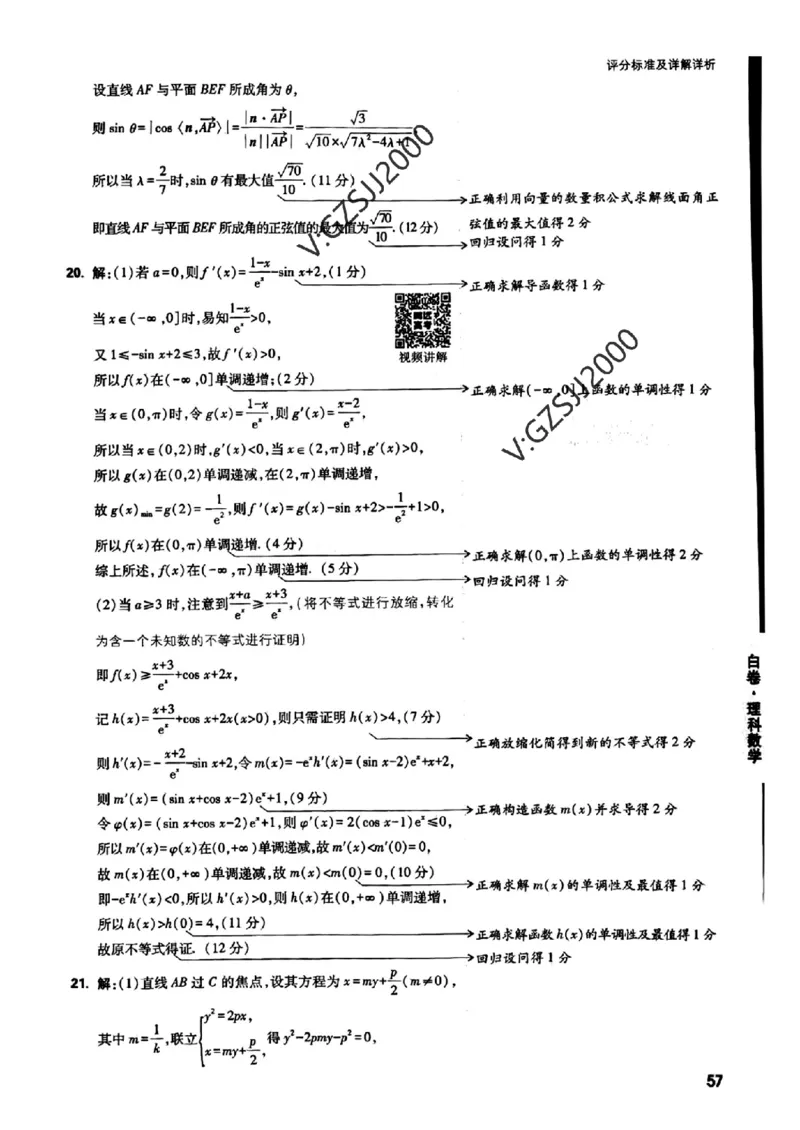 评分标准及详解详析
设直线 AF 与平面 BEF 所成角为 θ,
则 sin θ=|cos〈n,AP→〉|=|n·AP→|/(|n||AP→|)=√3/(√10×√(7λ²-4λ+1))
所以当 λ=2/7时,sin θ 有最大值√70/10.(11分)
→正确利用向量的数量积公式求解线面角正
弦值的最大值得 2 分
即直线 AF 与平面 BEF 所成角的正弦值的最大值为√70/10.(12分)
→回归设问得 1 分
20. 解:(1)若 a=0,则 f′(x)=(1-x)/eˣ-sin x+2,(1分)
→正确求解导函数得 1 分
当 x∈(-∞,0]时,易知(1-x)/eˣ>0,
视频讲解
又 1≤-sin x+2≤3,故 f′(x)>0,
所以 f(x)在(-∞,0]单调递增;(2分)
→正确求解(-∞,0]上函数的单调性得 1 分
当 x∈(0,π)时,令 g(x)=(1-x)/eˣ,则 g′(x)=(x-2)/eˣ,
所以当 x∈(0,2)时,g′(x)<0,当 x∈(2,π)时,g′(x)>0,
所以 g(x)在(0,2)单调递减,在(2,π)单调递增,
故 g(x)min=g(2)=-1/e²,则 f′(x)=g(x)-sin x+2>-1/e²+1>0,
所以 f(x)在(0,π)单调递增.(4分)
→正确求解(0,π)上函数的单调性得 2 分
综上所述,f(x)在(-∞,π)单调递增.(5分)
→回归设问得 1 分
(2)当 a≥3 时,注意到(x+a)/eˣ≥(x+3)/eˣ,(将不等式进行放缩,转化
为含一个未知数的不等式进行证明)
即 f(x)≥(x+3)/eˣ+cos x+2x,
记 h(x)=(x+3)/eˣ+cos x+2x(x>0),则只需证明 h(x)>4,(7分)
→正确放缩化简得到新的不等式得 2 分
则 h′(x)=-(x+2)/eˣ-sin x+2,令 m(x)=-eˣh′(x)=(sin x-2)eˣ+x+2,
则 m′(x)=(sin x+cos x-2)eˣ+1,(9分)
→正确构造函数 m(x)并求导得 2 分
令 φ(x)=(sin x+cos x-2)eˣ+1,则 φ′(x)=2(cos x-1)eˣ≤0,
所以 m′(x)=φ(x)在(0,+∞)单调递减,故 m′(x)<m′(0)=0,
故 m(x)在(0,+∞)单调递减,故 m(x)<m(0)=0,(10分)
→正确求解 m(x)的单调性及最值得 1 分
即-eˣh′(x)<0,所以 h′(x)>0,则 h(x)在(0,+∞)单调递增,
所以 h(x)>h(0)=4,(11分)
→正确求解函数 h(x)的单调性及最值得 1 分
故原不等式得证.(12分)
→回归设问得 1 分
21. 解:(1)直线 AB 过 C 的焦点,设其方程为 x=my+p/2(m≠0),
其中 m=1/k,联立{y²=2px, x=my+p/2, 得 y²-2pmy-p²=0,
白卷·理科数学
57
V:GZSJJ2000
V:GZSJJ2000